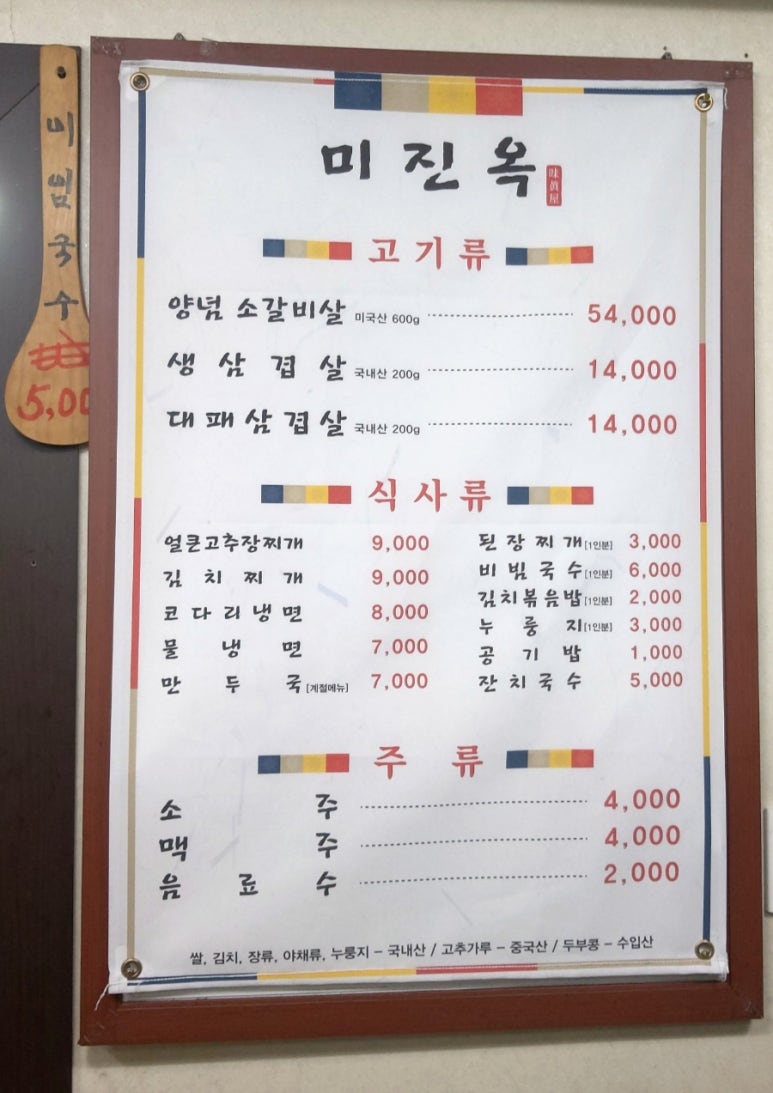 미진옥
味眞屋
고기류
양념 소갈비살 미국산 600g 54,000
생삼겹살 국내산 200g 14,000
대패삼겹살 국내산 200g 14,000
식사류
얼큰고추장찌개 9,000
김치찌개 9,000
코다리냉면 8,000
물냉면 7,000
만두국 [계절메뉴] 7,000
된장찌개 [1인분] 3,000
비빔국수 [1인분] 6,000
김치볶음밥 [1인분] 2,000
누룽지 [1인분] 3,000
공기밥 1,000
잔치국수 5,000
주류
소주 4,000
맥주 4,000
음료수 2,000
쌀, 김치, 장류, 야채류, 누룽지 – 국내산 / 고추가루 – 중국산 / 두부콩 – 수입산
국수
5,00